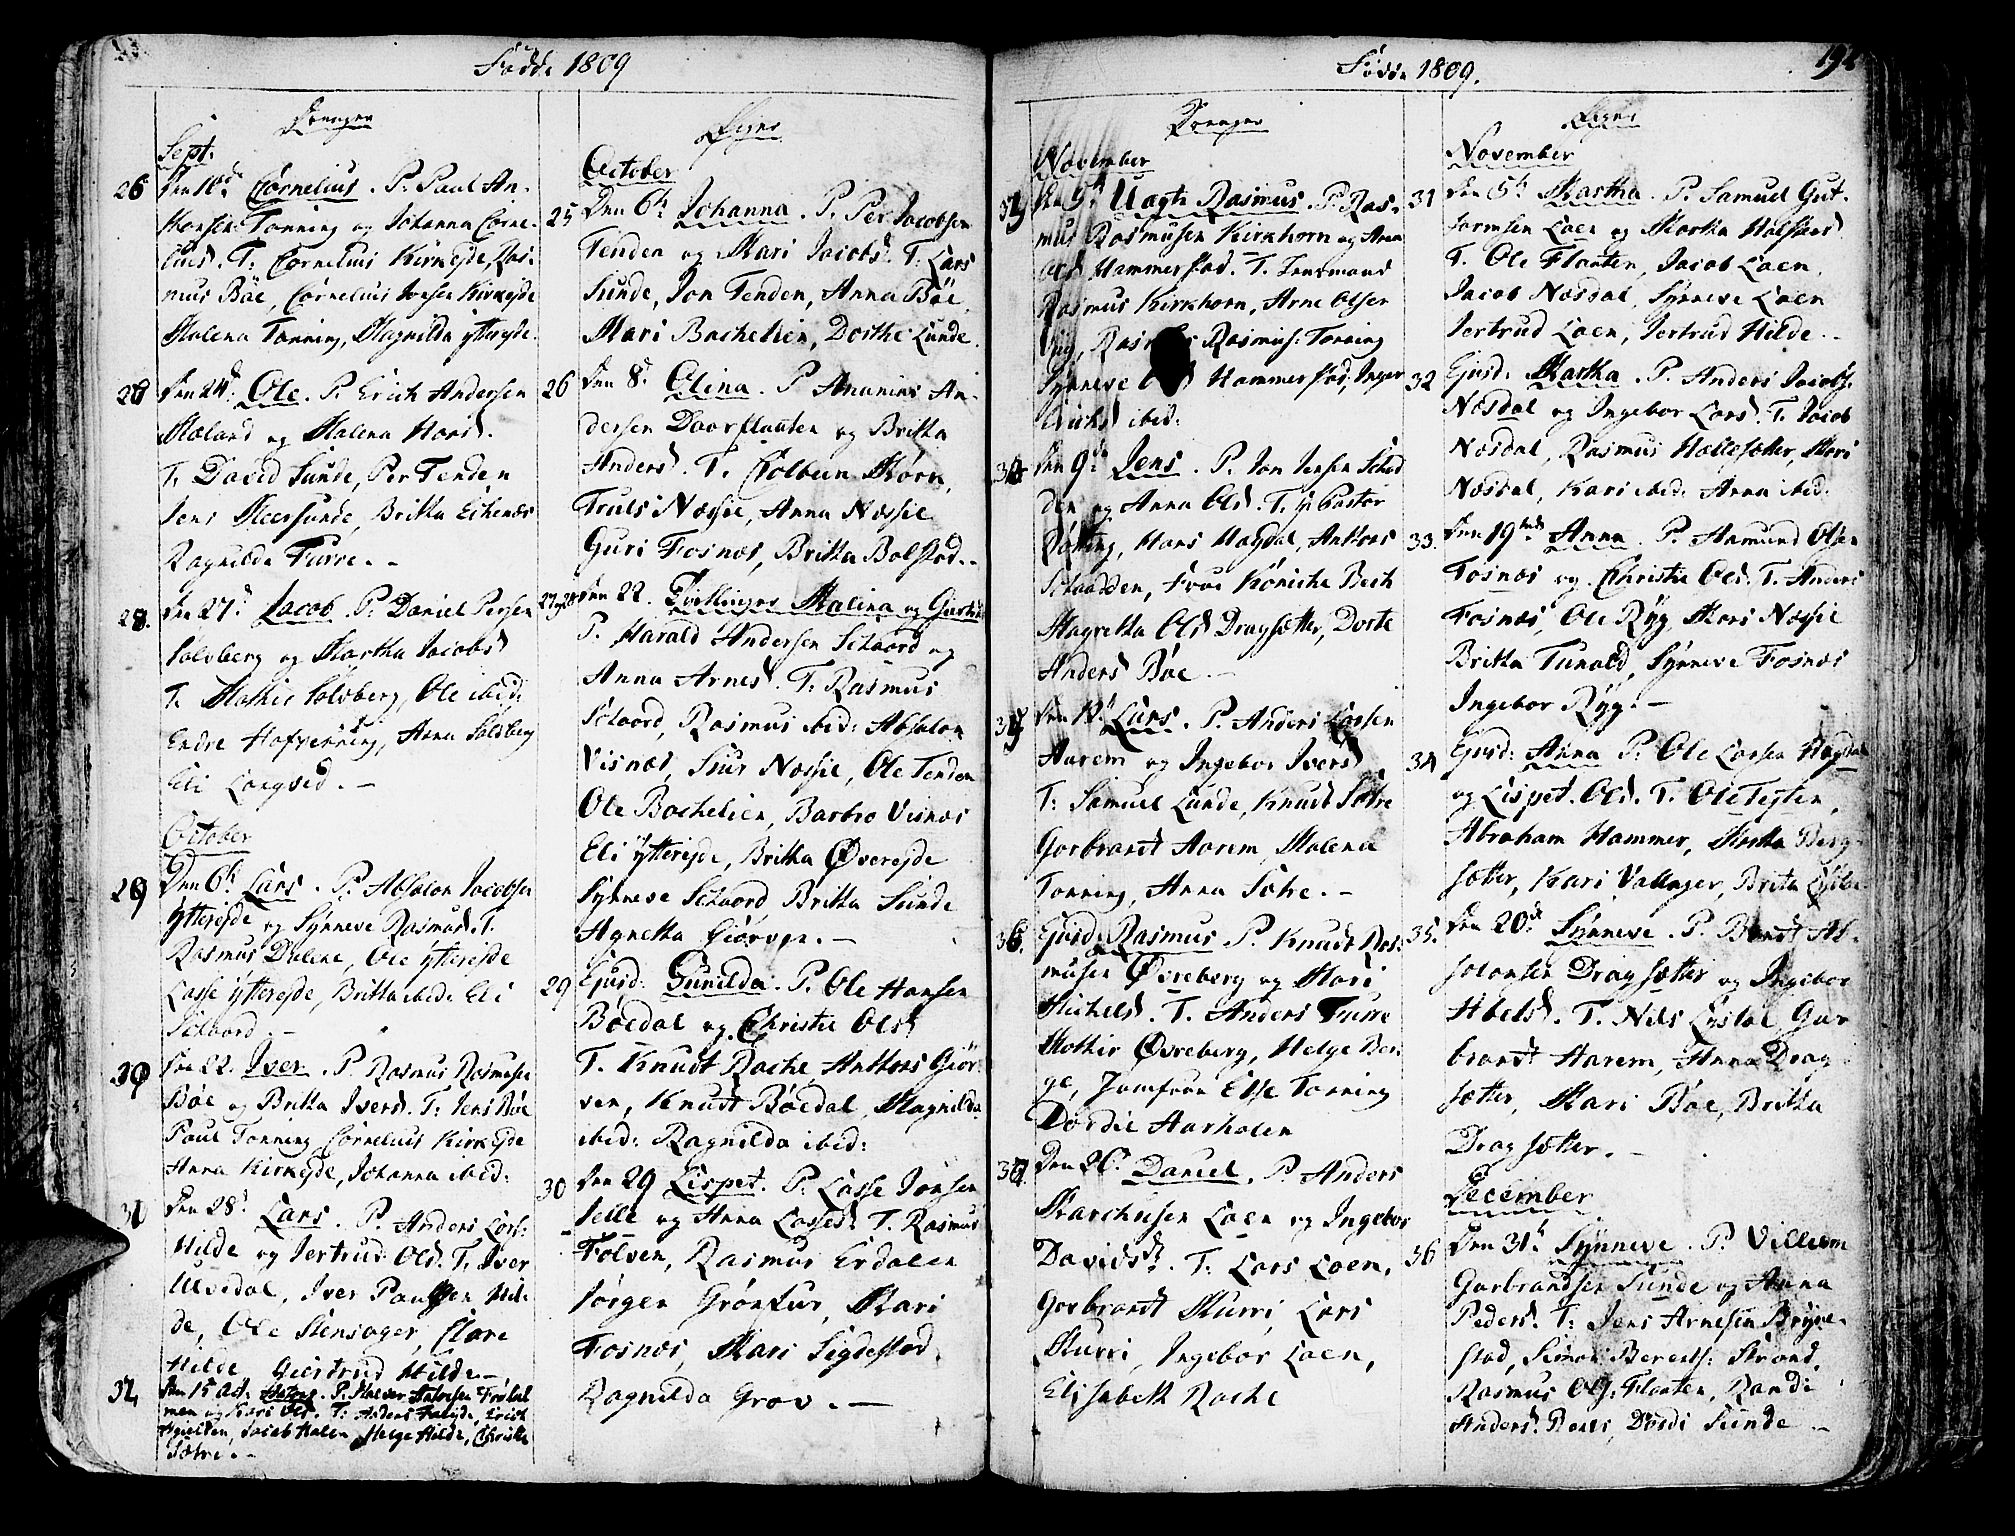 Fødde 1809
Drenger
Sept:
26 Den 10d Cornelius. P. Paul An-
Hansen Tonning og Johanna Corne-
lius. T. Cornelius Kirkejde, Ras-
mus Böe, Cornelius Iversen Kirkejde
Malena Tonning, Magnilda ytterejde.
Den 24d Ole. P. Erich Andersen
Mæland og Malena Hans.
T. David Sunde, Per Tenden
Jens Meersunde, Britta Eikenæs
Ragnilda Furre. -
28. Den 27d Jacob. P. Daniel Persen
Solvberg og Martha Jacobsd
T. Mathis Solvberg, Ole ibid:
Endre Hafrenning, Anna Solvberg
Eli Langved. -
October
29 Den 6h Lars. P. Absolon Jacobsen
Ytterejde og Synneve Rasmusd. T.
Rasmus Dalene, Ole ytterejde
Lasse ytterejde, Britta ibid: Eli
Schaard. -
30 Den 22. Iver. P. Rasmus Rasmusen
Böe og Britta Iversd. T: Jens Böe
Paul Tonning Cornelius Kirkejde
Anna Kirkejde, Johanna ibid:
31 Den 28d Lars. P. Anders Lars:
Hilde og Jertrud Olsd. T. Iver
Ulvedal, Iver Paulsen Hil-
de, Ole Stensager, Clare
Hilde Giertrud Hilde -
32 Den 15 Oct.
men og Kari Olsd. T: Anders Erich
Jacob Helge Hilde, Christie
Sætre. -
Piger
October
25 Den 6h Johanna. P. Per Jacobsen
Tenden og Mari Jacobsd. T. Lars
Sunde, Jon Tenden, Anna Böe
Mari Bachelien, Dorthe Sunde.
26 Den 8d Olina. P. Ananias An-
dersen Daarflaaten og Britta
Andersd. T. Colbein Mörn,
Truls Næssie, Anna Næssie
Guri Fosnæs, Britta Bolstad. -
27 og 28 Den 22. Tvillinger Malina og
P. Harald Andersen Schaard og
Anna Arnesd. T. Rasmus
Schaard, Rasmus ibid: Absolon
Visnæs, Siur Næssie, Ole Tenden
Ole Bachelien, Barbro Visnæs
Eli ytterejde, Britta Øverejde
Synneve Schaard Britta Sunde
Agnetta Giörven. -
29 Ejusd: Gunilda. P. Ole Hansen
Böedal og Christie Olsd
T. Knudt Rache Anthons Giör-
ven, Knudt Böedal, Magnilda
ibid: Ragnilda ibid:
30 Den 29 Lispet. P. Lasse Jonsen
Selle og Anna Lassed. T. Rasmus
Folven, Rasmus Erdalen
Jörgen Grönfur, Mari
Fosnæs, Mari Sigdestad.
Ragnilda Grov. -
Fødde 1809.
192
Drenger
November
Den 5h Uægte Rasmus. P. Ras-
mus Rasmusen Kirkhorn og Anna
Hammerstad. T. Lensmand
Rasmus Kirkhorn, Arne Olsen
Rasmus: Tonning
Synneve Hammerstad, Inger
Erichsd ibid.
34 Den 9de Jens. P. Jon Jensen Schod
den og Anna Olsd. T. Hr Pastor
Hans Hagdal, Anthons
Schaadden, Frue Könicke Bech
Magretha Olsd Dragsætter, Dorte
Andersd Böe. -
35 Den 12d Lars. P. Anders Larsen
Aarem og Ingebor Iversd
T: Samuel Sunde, Knudt Sætre
Garbrandt Aarem Malena
Tonning, Anna Sætre. -
36. Ejusd: Rasmus P. Knudt Ras:
musen Øvreberg og Mari
Michelsd. T. Anders Furre
Mathis Øvreberg, Helge Ber-
ge, Jomfrue Else Tonning
Dordie Aarholen
Den 26. Daniel. P. Anders
Marchusen Loen og Ingebor
Davidsdt. T. Lars Loen,
Garbrandt Murri, Lars
Murri, Ingebor Loen,
Elisabeth Rache
Piger
November
31 Den 5h Martha. P. Samuel Gut-
tormsen Loen og Martha
T. Ole Flaaten, Jacob Loen
Jacob Næsdal, Synneve Loen
Jertrud Loen, Jertrud Hilde. -
32 Ejusd. Martha. P. Anders Jacobs.
Næsdal og Ingebor Larsd. T. Jacob
Næsdal, Rasmus Hellesætter, Mari
Næsdal, Kari ibid: Anna ibid:
33. Den 19de Anna. P. Anmund Olsen
Fosnæs og Christie Olsd. T. Anders
Fosnæs, Ole Ryg Mari Næssie
Britta Tunold, Synneve Fosnæs
Ingebor Ryg. -
34 Ejusd: Anna P. Ole Larsen Hagdal
og Lispet Olsd. T. Ole Tejten,
Abraham Hammer, Berg-
sætter, Kari Vallager, Brita
35. Den 20de Synneve. P. Berndt Ab-
solonsen Dragsætter og Ingebor
Abelsd. T. Nils Gar
brandt Aarem, Anna Drag-
sætter, Mari Böe, Britta
Dragsætter. -
December
36 Den 31h Synneve. P. Villum
Garbrandsen Sunde og Anna
Pedersd. T: Jens Arnesen Bryne-
stad, Simon Berents: Strand,
Rasmus Ols: Flaaten, Randi
Andersd. Dordi Sunde -